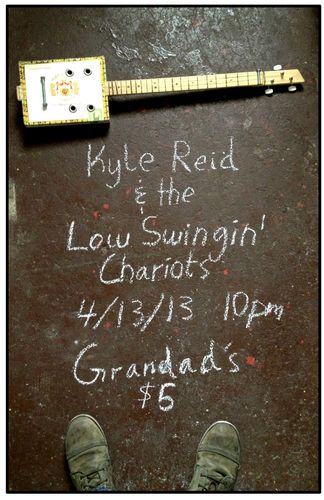 Kyle Reid
& the
Low Swingin'
Chariots
4/13/13 10pm
Grandad's
$5